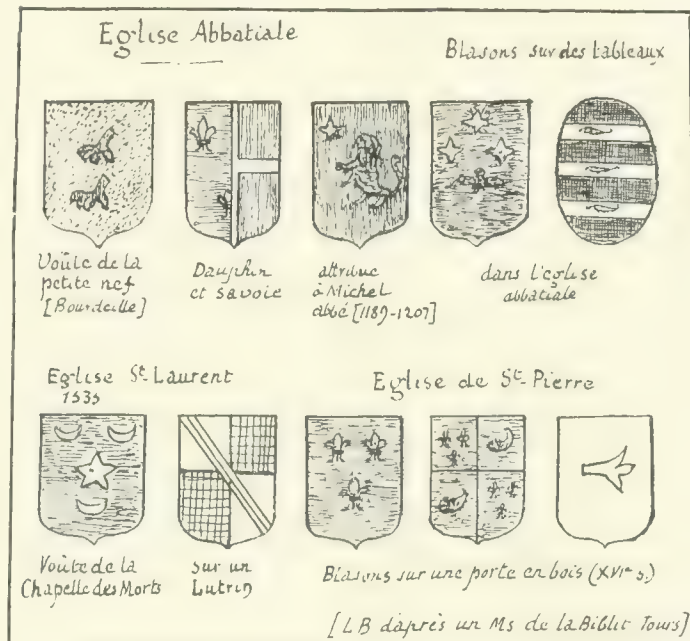 Eglise Abbatiale
Blasons sur des tableaux
Voûte de la
petite nef
[Bourdeille]
Dauphin
et savoie
attribué
à Michel
abbé [1189-1207]
dans l'eglise
abbatiale
Eglise St. Laurent
1535
Eglise de St-Pierre
Voûte de la
Chapelle des Morts
sur un
Lutrin
Blasons sur une porte en bois (XVIe s.)
[LB d'après un Ms de la Biblit Tours]